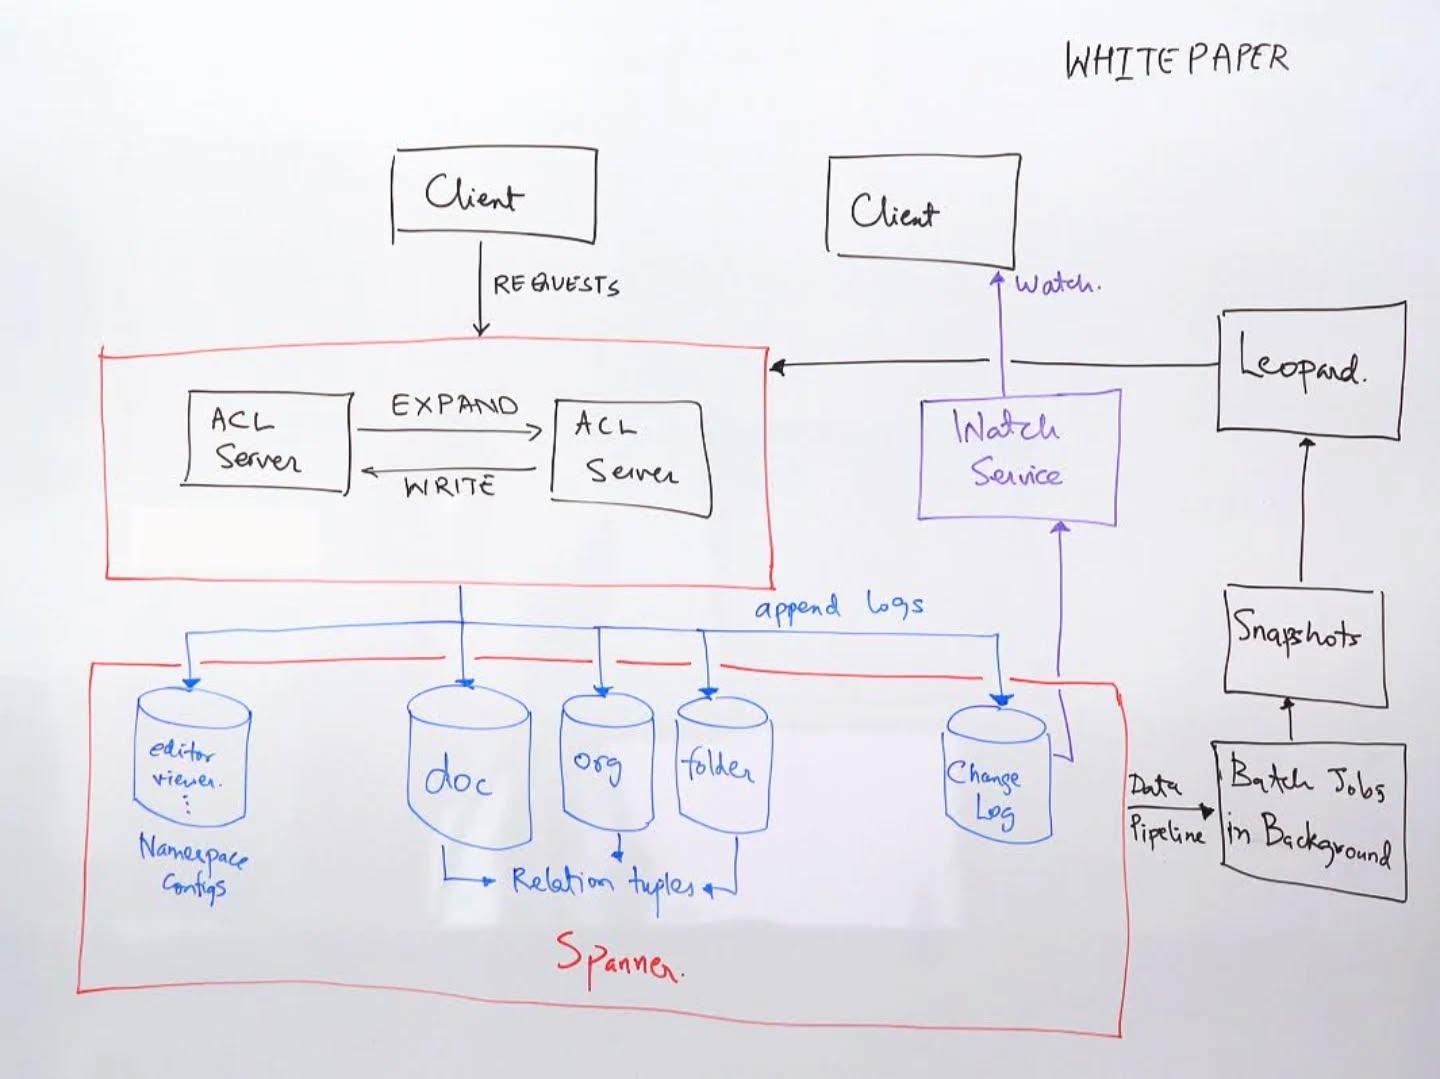 WHITEPAPER
Client
Client
REQUESTS
Watch.
Leopard.
ACL
Server
EXPAND
WRITE
ACL
Server
Watch
Service
append logs
Snapshots
editor
viewer.
Namespace
Configs
doc
org
folder
Relation tuples
Change
Log
Data
Pipeline
Batch Jobs
in Background
Spanner.